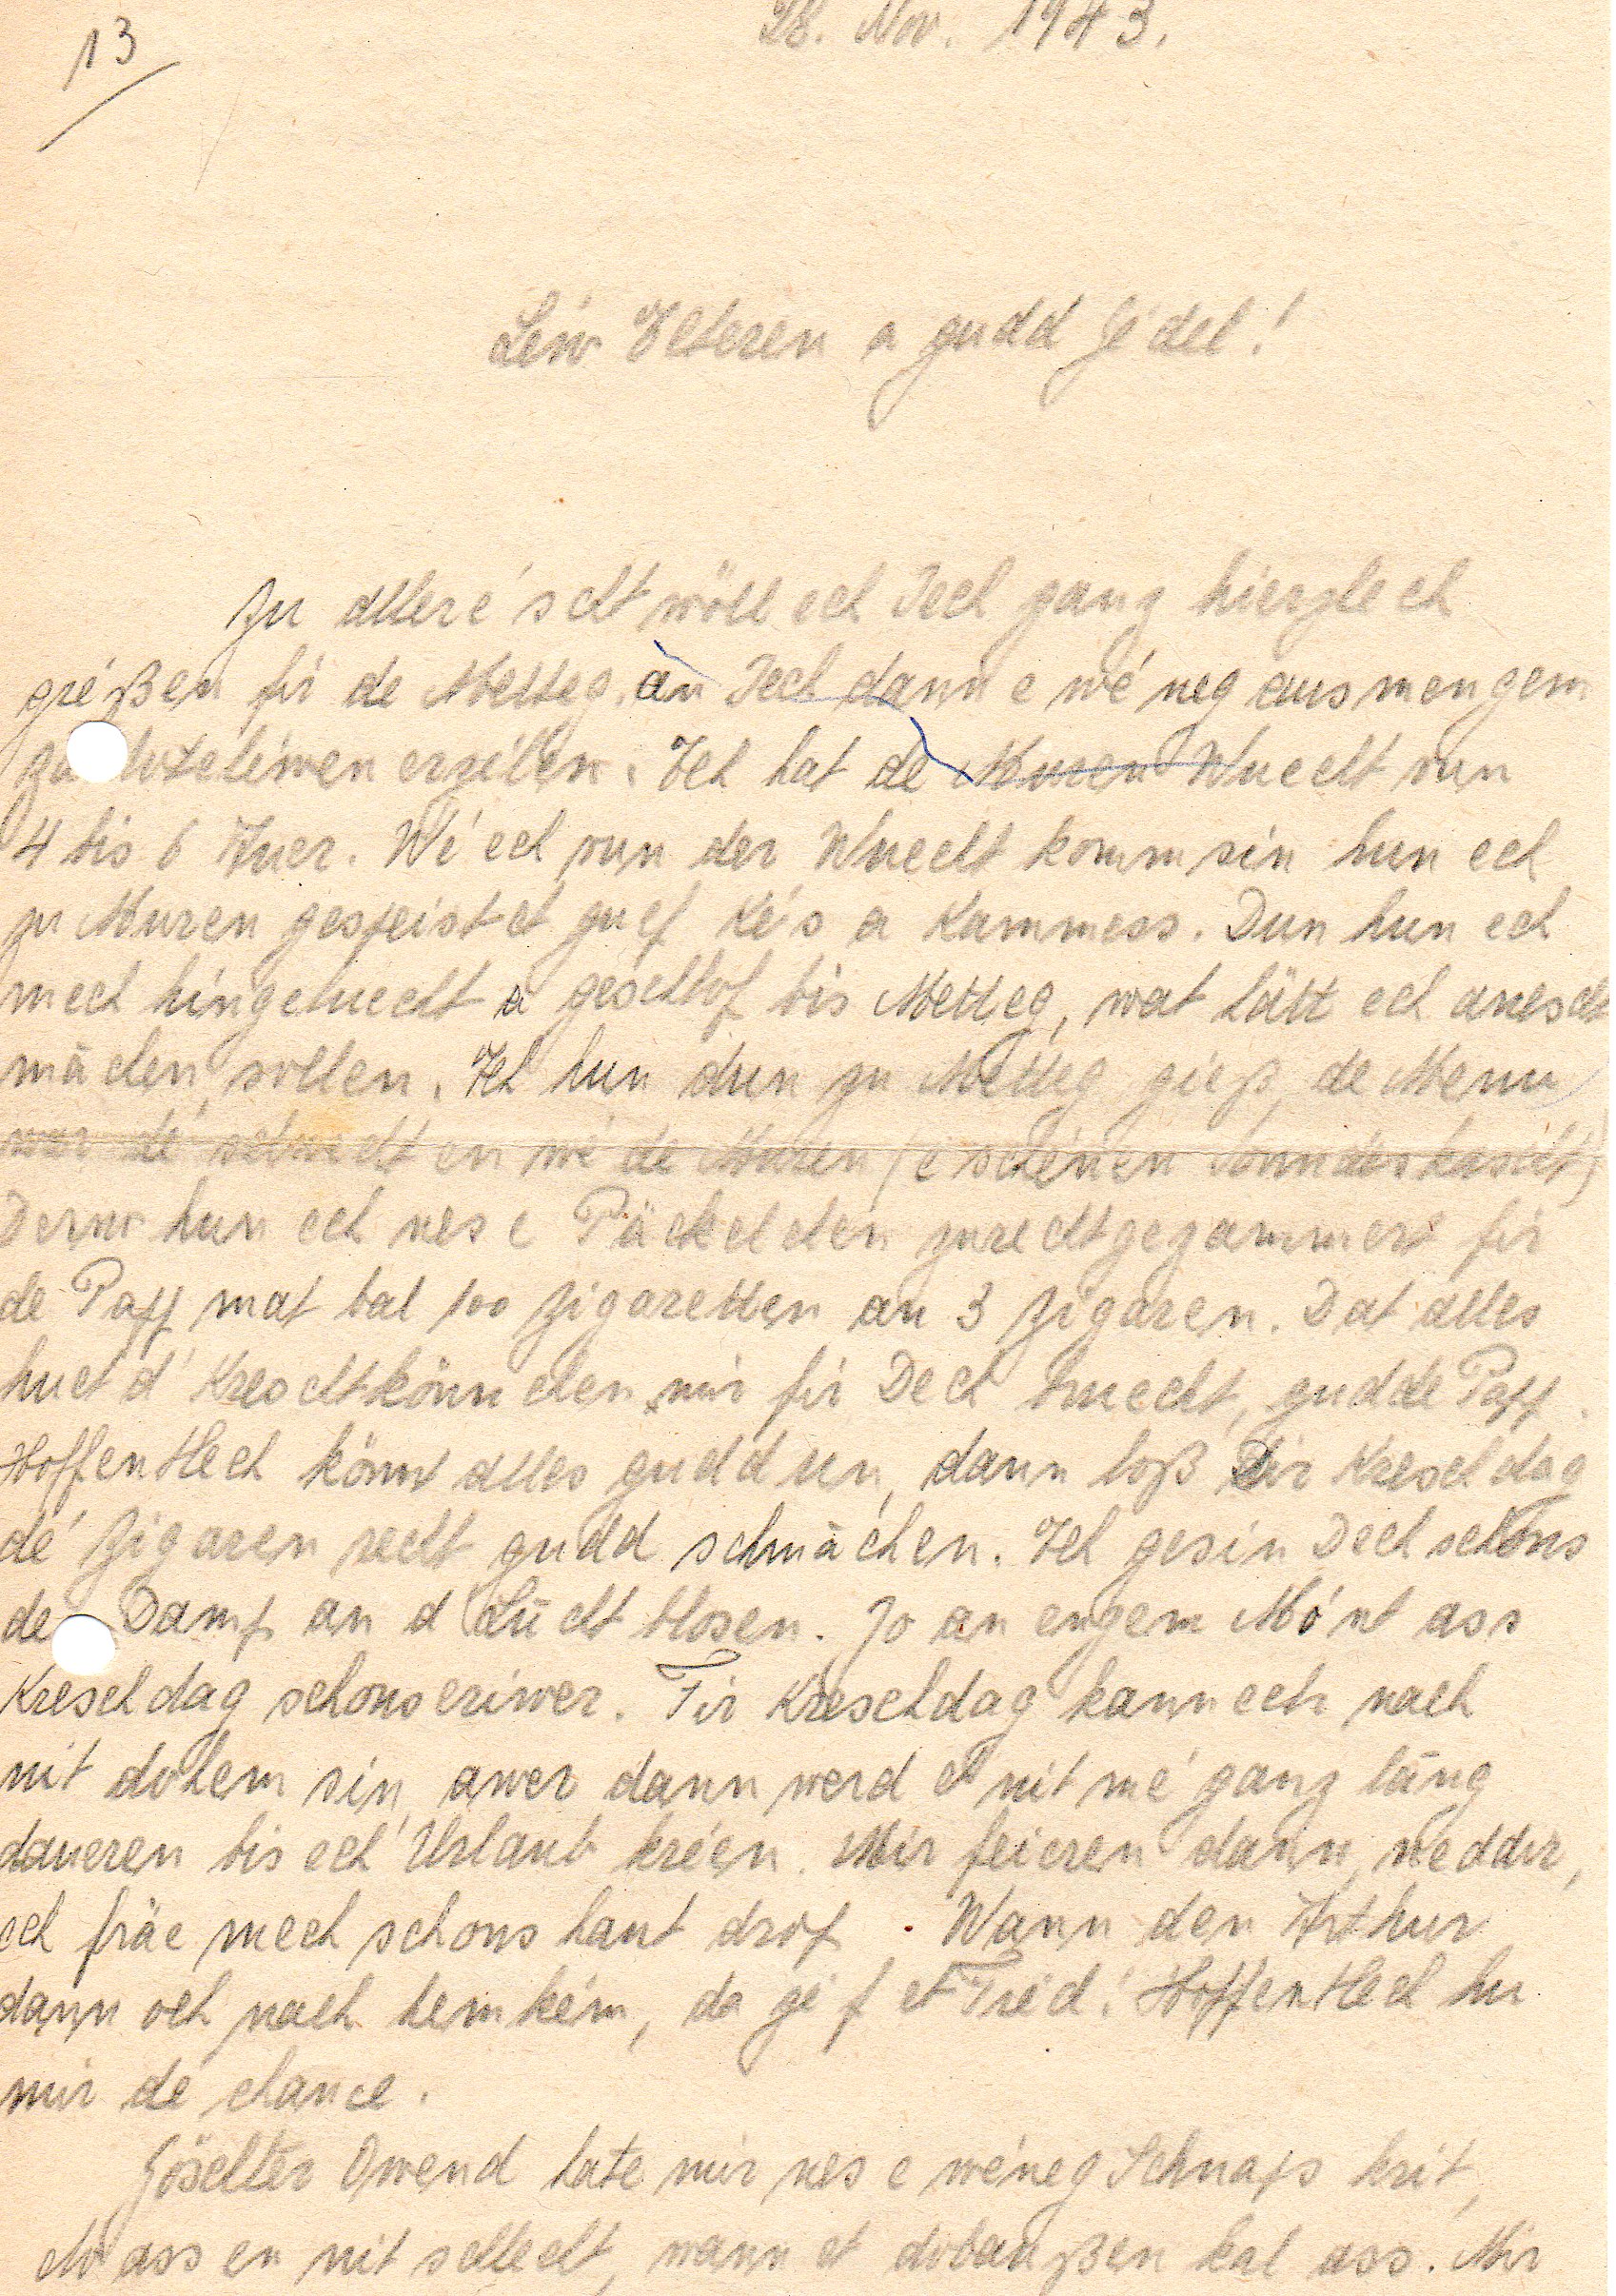 13
28. Nov. 1943.
Léiw Elteren a gudd Jédel!
Zu alleréscht wöll ech Iech ganz hierzlech
gréßen fir de Metteg an Iech dann e wéneg aus mengem
erzielen. Ech hat de Muren Wuecht vun
4 bis 6 Auer. Wé ech vun der Wuecht komm sin hun ech
zu Muren gespeist et guef Kés a Kammess. Dun hun ech
mech hingeluecht a geschlof bis Metteg, wat hätt ech anescht
mächen sollen. Ech hun dun zu Metteg gieß, de Menu
war dé selwechten wé de Muren (e schéinen Sonndeskascht)
Derno hun ech nes e Päckelchen zurechtgezammert fir
de Papp mat bal 100 Zigaretten an 3 Zigaren. Dat alles
huet d'Kreschtkönnchen mir fir Dech bruecht, gudde Papp.
Hoffentlech könnt alles gudd un, dann loß Dir Kreschdag
dé Zigaren recht gudd schmächen. Ech gesin Dech schons
de Damp an d Lücht blosen. Jo an engem Mónt ass
Kreschdag schons eriwer. Fir Kreschdag kann ech nach
nit dohem sin, awer dann werd et nit mé ganz läng
daueren bis ech Urlaub kréen. Mir feieren dann neddir,
ech fräe mech schons haut drof. Wann den Arthur
dann och nach hemkém, da géf et Fréd! Hoffentlech hu
mir dé chance.
Göschter Owend hate mir nes e wéneg Schnaps krit,
do ass en nit schlecht, wann et dobaußen kal ass. Mir